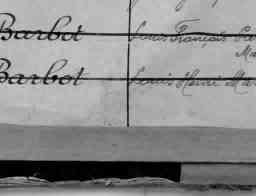 Barbot Louis François
Barbot Louis Henri